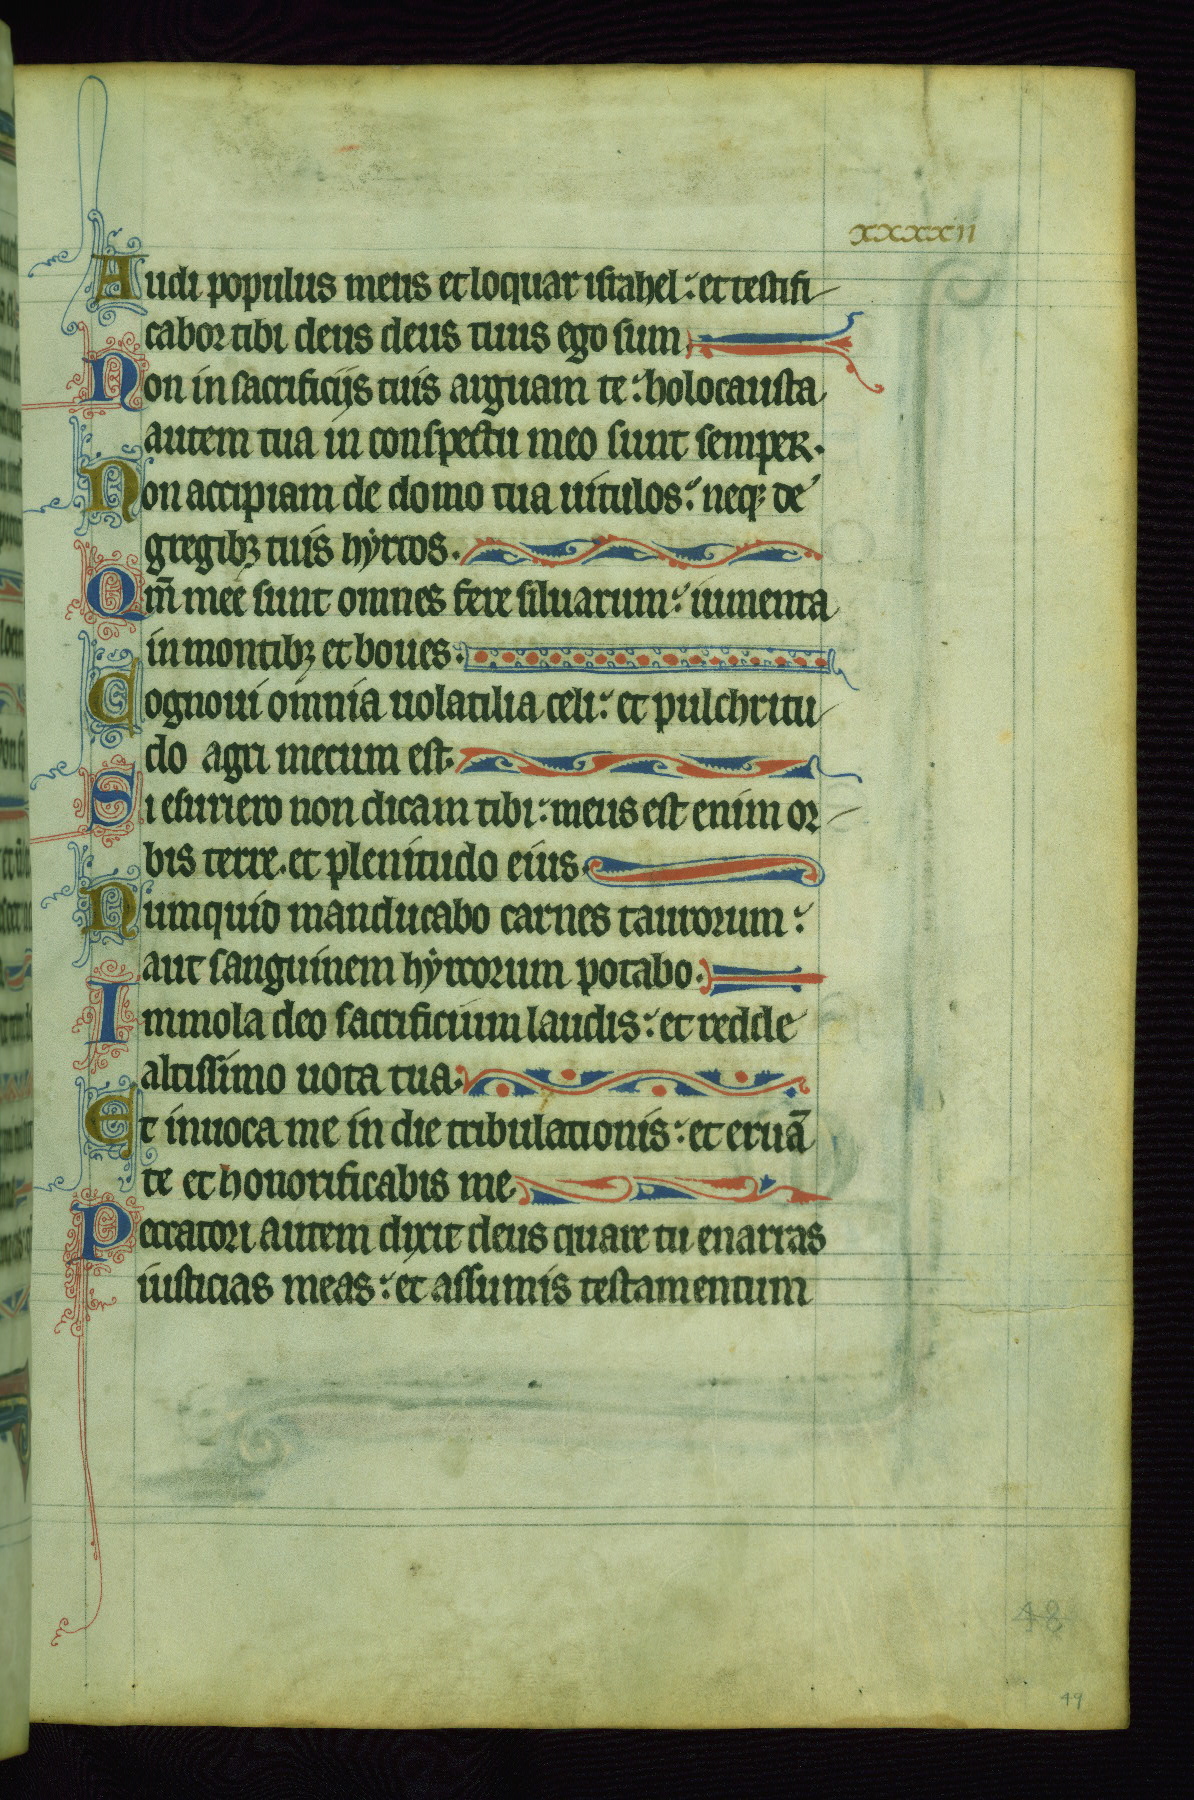 xxxxii
Audi populus meus et loquar israhel: et testifi
cabor tibi deus deus tuus ego sum.
Non in sacrificijs tuis arguam te: holocausta
autem tua in conspectu meo sunt semper.
Non accipiam de domo tua uitulos: neqꝫ de
gregibꝫ tuis hẏrcos.
Qm̄ mee sunt omnes fere siluarum: iumenta
in montibꝫ et boues.
Cognoui omnia uolatilia celi: et pulchritu
do agri mecum est.
Si esuriero non dicam tibi: meus est enim or
bis terre. et plenitudo eius.
Numquid manducabo carnes taurorum:
aut sanguinem hẏrcorum potabo.
Immola deo sacrificium laudis: et redde
altissimo uota tua.
Et inuoca me in die tribulationis: et eruā
te et honorificabis me.
Peccatori autem dixit deus quare tu enarras
iusticias meas: et assumis testamentum
48
49